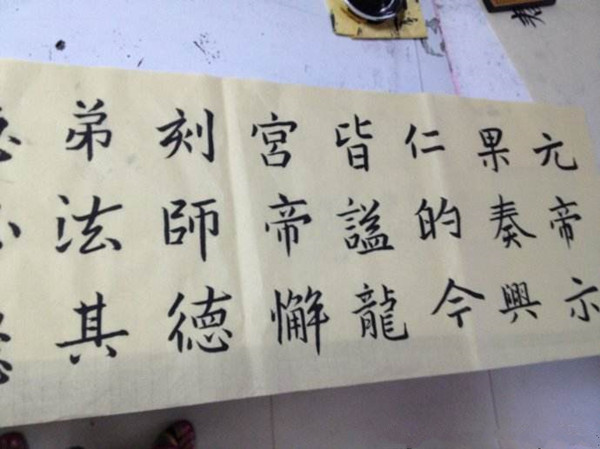 元帝示
果奏興
仁的今
皆謚龍
宮帝懈
刻師德
弟法其